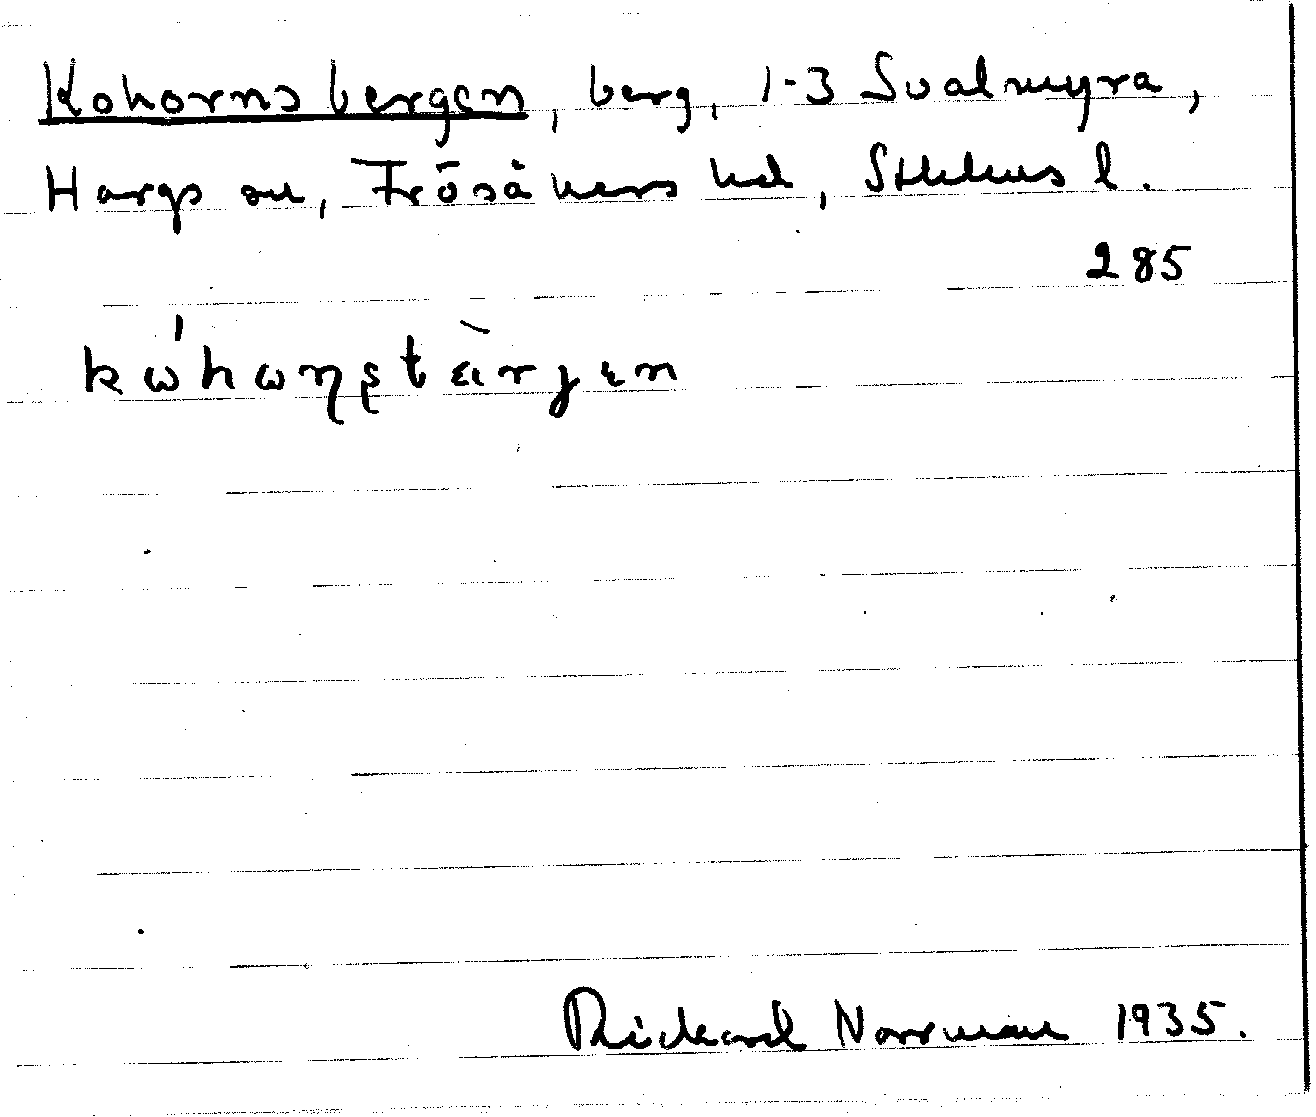 Kohornsbergen, berg, 1-3 Svalmyra,
Hargs sn, Frösåkers hd, Sthlms l.
285
kωhωɳʂtärjen
Rickard Norrman 1935.